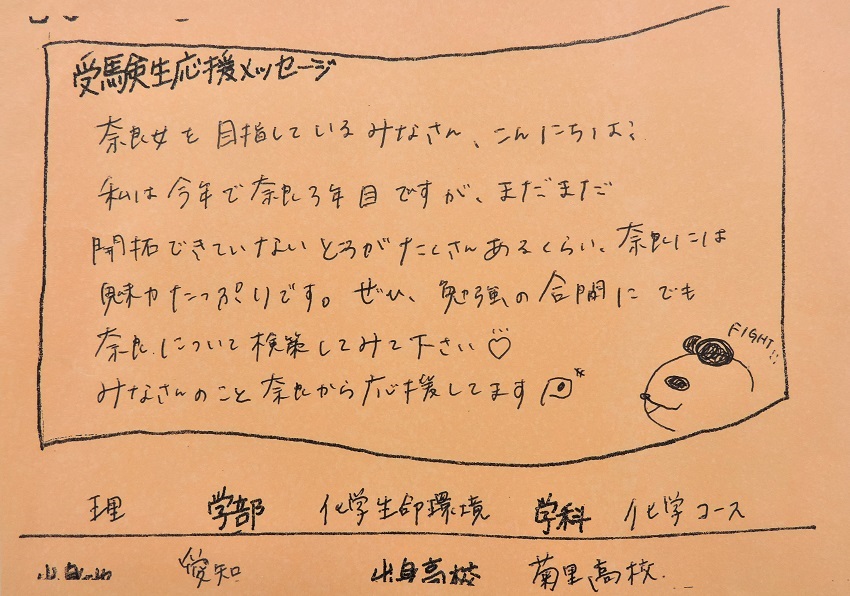 受験生応援メッセージ
奈良女を目指しているみなさん、こんにちは！
私は今年で奈良3年目ですが、まだまだ
開拓できていないところがたくさんあるくらい、奈良には
魅力たっぷりです。ぜひ、勉強の合間にでも
奈良について検索してみて下さい♡
みなさんのこと奈良から応援してます
FIGHT!!
理 学部 化学生命環境 学科 化学コース
愛知 出身高校 菊里高校.